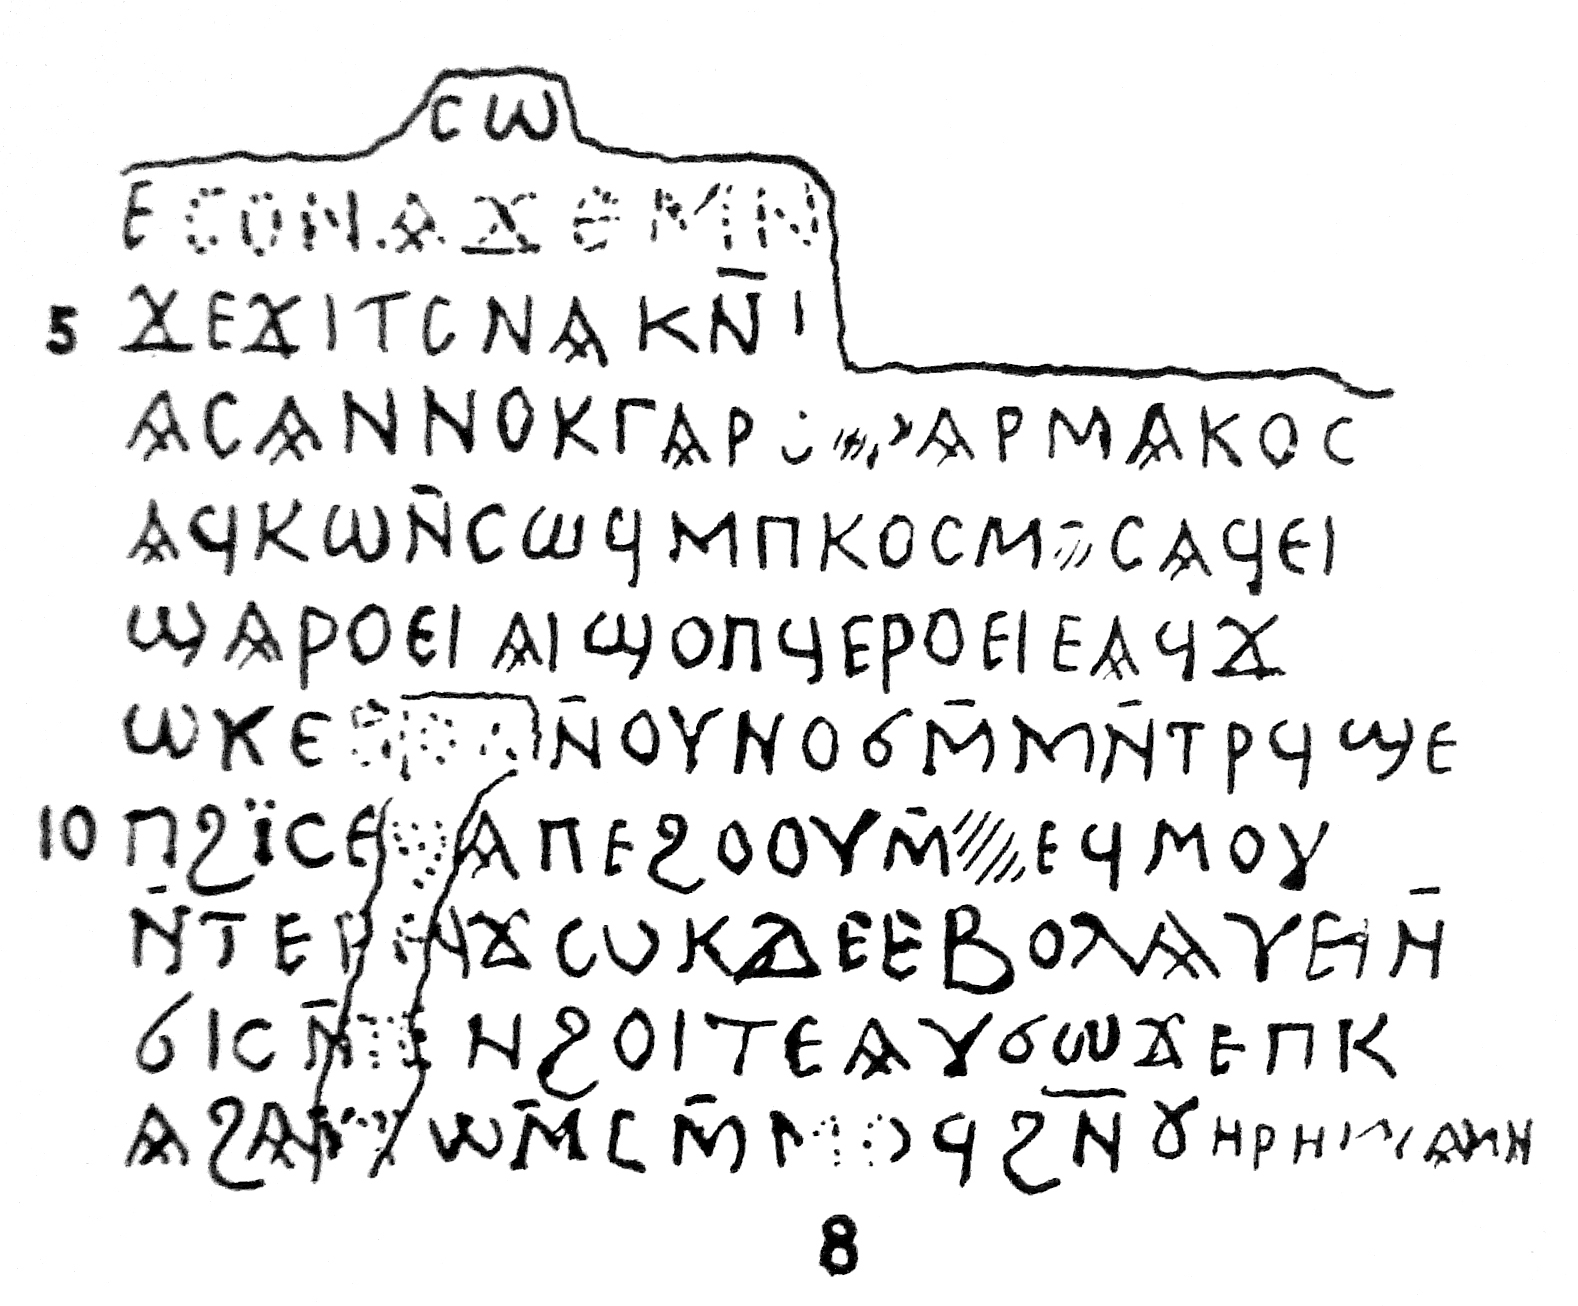 ⲥⲱ
ⲉⲥⲟⲛⲁϫⲉⲙⲛ
5 ϫⲉϫⲓⲧⲥⲛⲁⲕⲛ̄ⲓ
ⲁⲥⲁⲛⲛⲟⲕⲅⲁⲣ ⲁⲣⲙⲁⲕⲟⲥ
ⲁϥⲕⲱⲛ̄ⲥⲱϥⲙⲡⲕⲟⲥⲙ ⲥⲁϥⲉⲓ
ϣⲁⲣⲟⲉⲓⲁⲓϣⲟⲡϥⲉⲣⲟⲉⲓⲉⲁϥϫ
ⲱⲕⲉ ⲛ̄ⲟⲩⲛⲟϭⲙ̄ⲙⲛ̄ⲧⲣϥϣⲉ
10 ⲡϩⲓ̈ⲥⲉ ⲁⲡⲉϩⲟⲟⲩⲙ̄ ⲉϥⲙⲟⲩ
ⲛ̄ⲧⲉⲣ ϫⲥⲩⲕⲇⲉⲉⲃⲟⲗⲁⲩⲉⲓⲛ̄
ϭⲓⲥⲛ̄ⲧⲉⲛϩⲟⲓⲧⲉⲁⲩϭⲱϫⲉⲡⲕ
ⲁϩⲁ ⲱⲙ̄ⲥⲙ̄ⲙⲟϥϩⲛ̄ⲟⲩⲏⲣⲏ
8